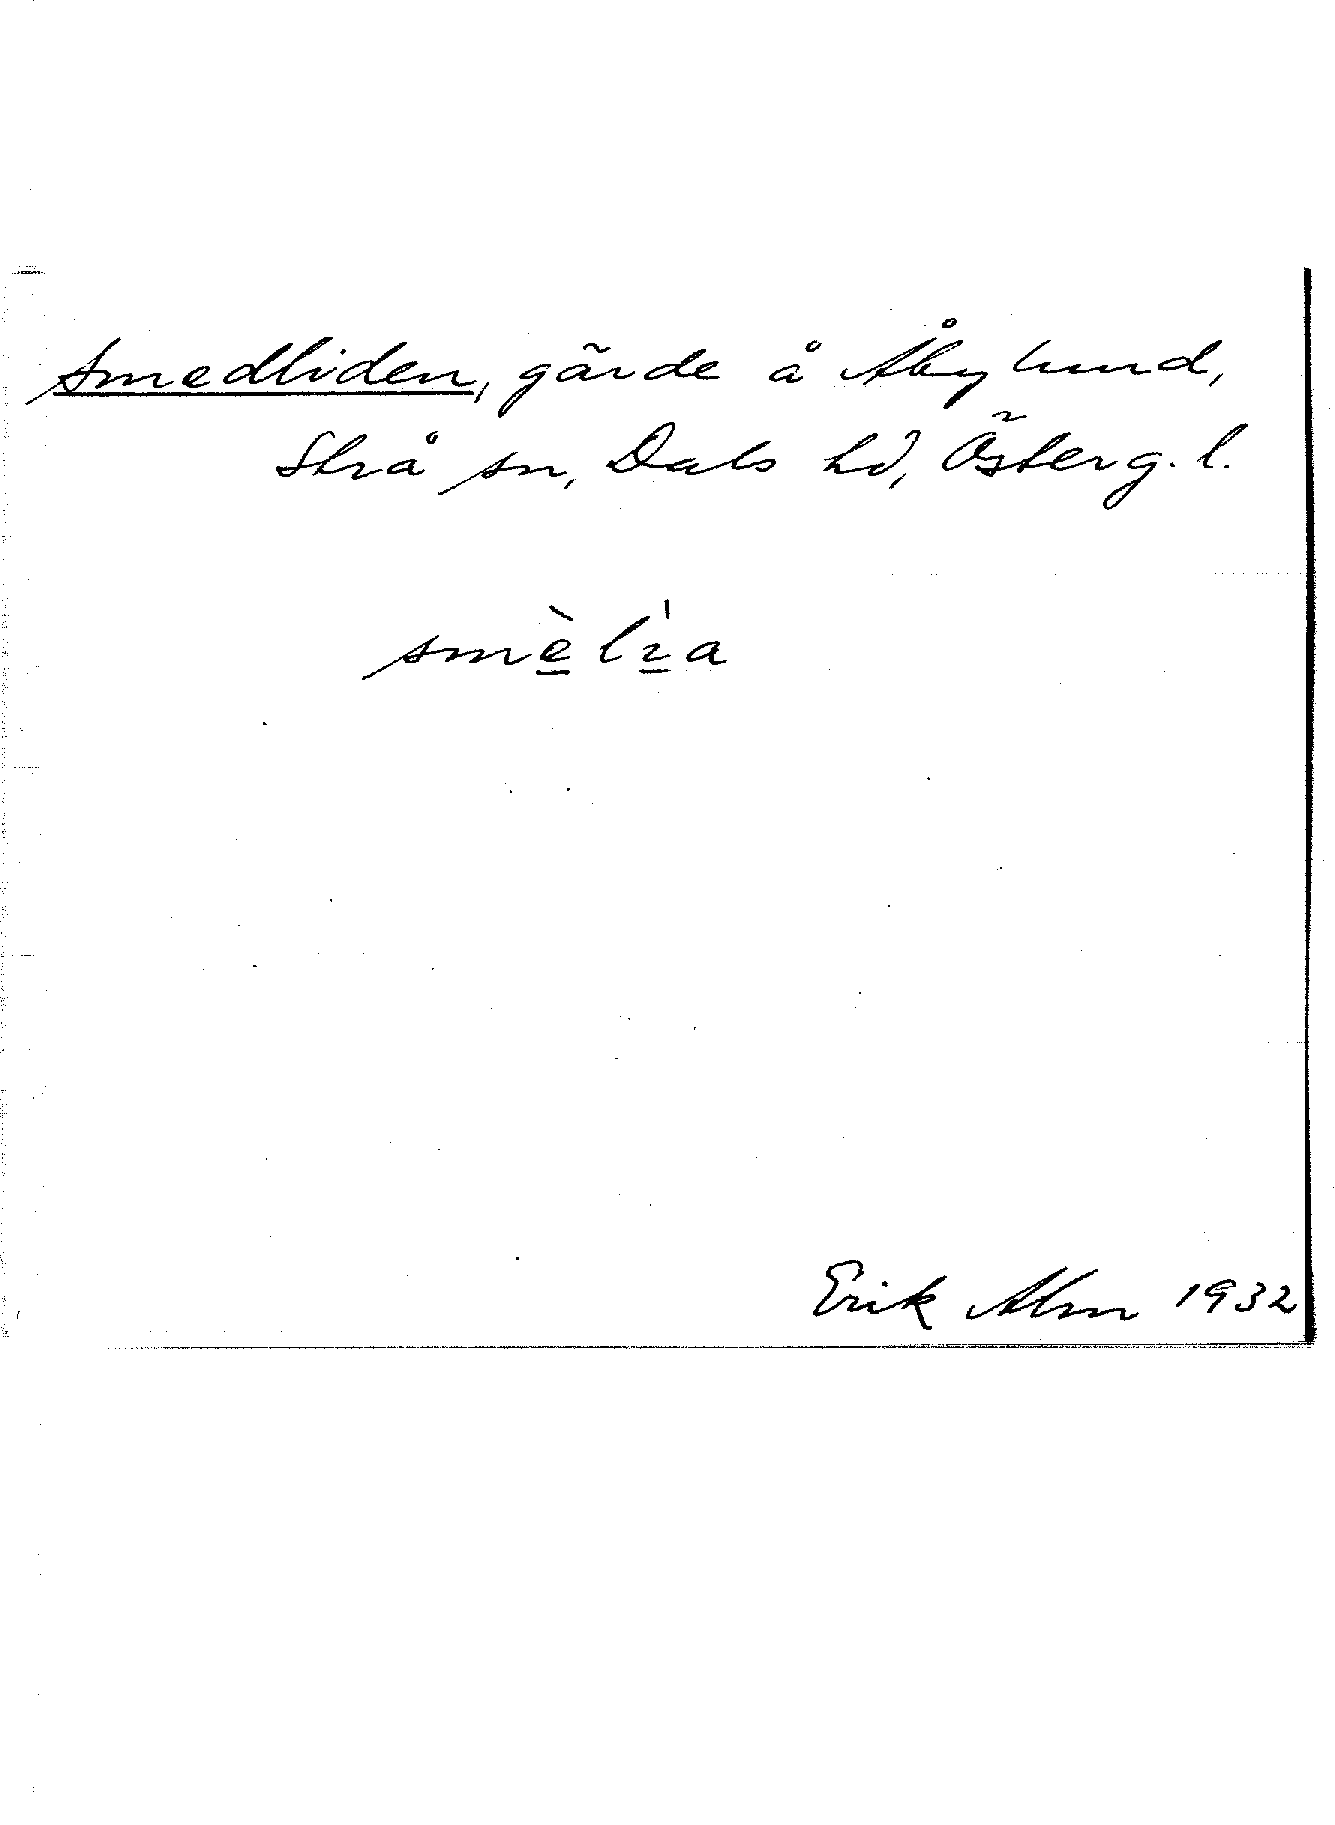 Smedliden, gärde å Åbylund,
Strå sn, Dals hd, Österg. l.
smè̱lı̱̍a
Erik Alm 1932